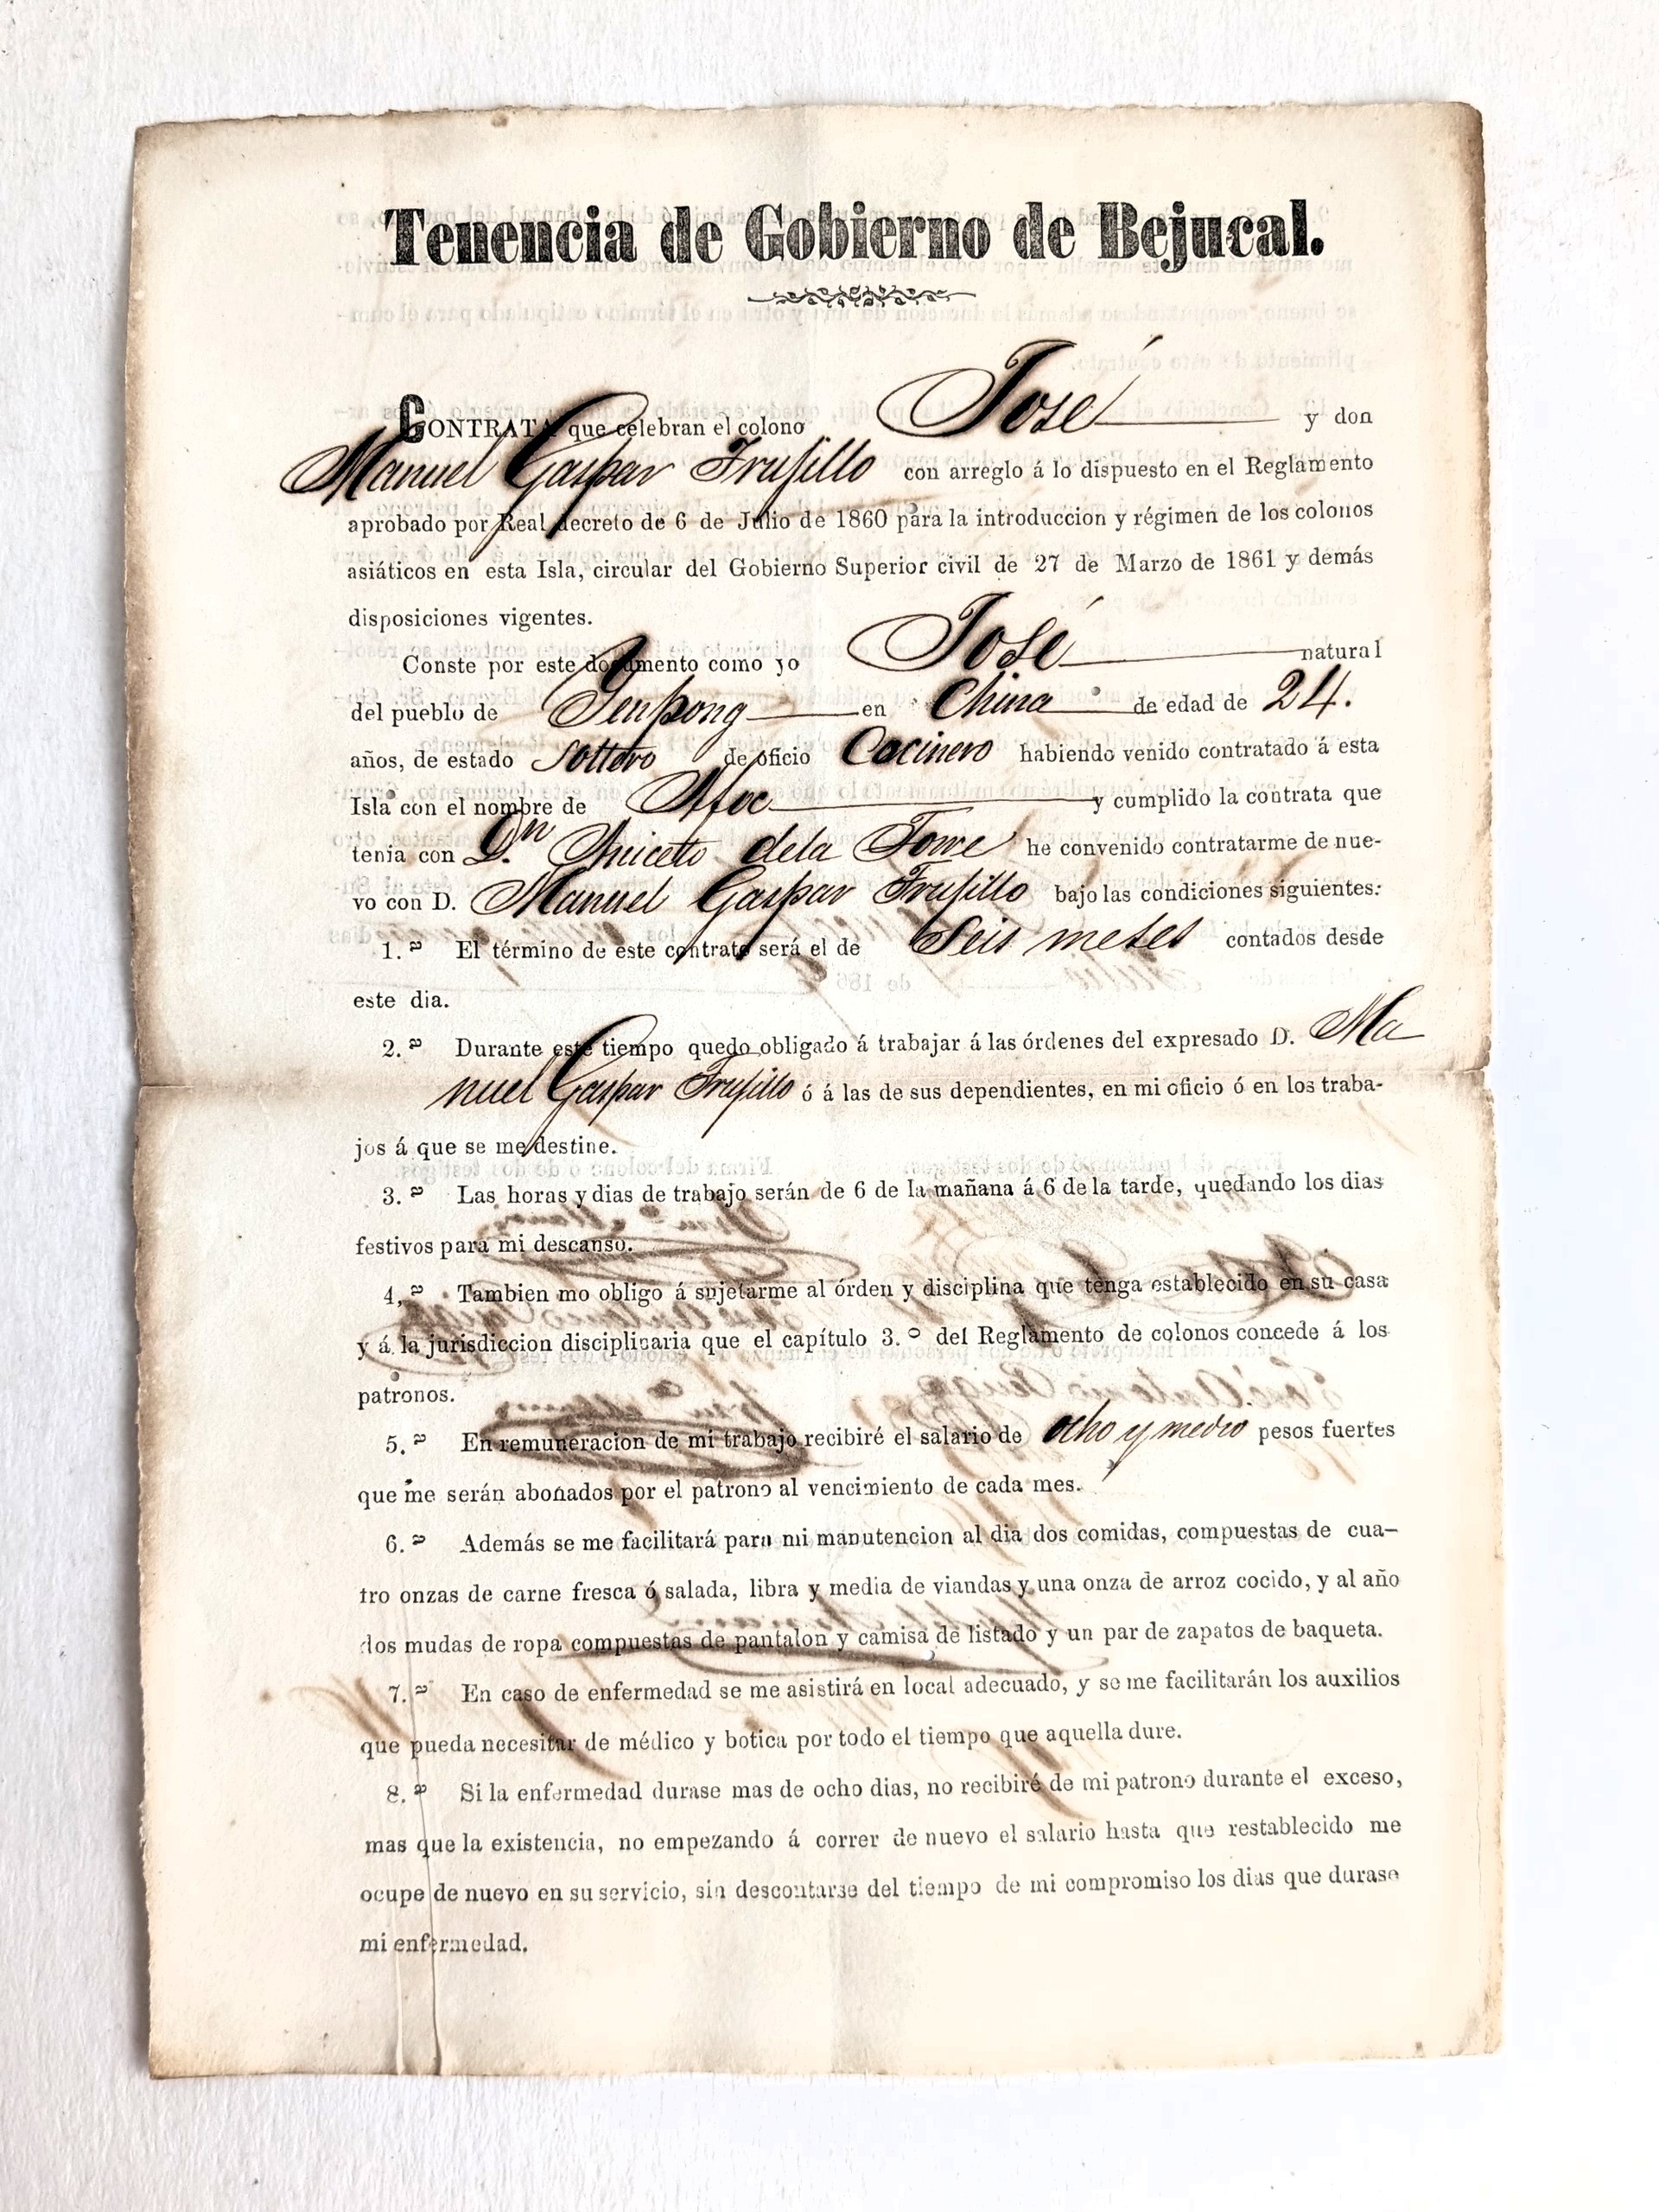 Tenencia de Gobierno de Bejucal.
CONTRATA que celebran el colono José y don
Manuel Gaspar Trujillo con arreglo á lo dispuesto en el Reglamento
aprobado por Real decreto de 6 de Julio de 1860 para la introduccion y régimen de los colonos
asiáticos en esta Isla, circular del Gobierno Superior civil de 27 de Marzo de 1861 y demás
disposiciones vigentes.
Conste por este documento como yo José natural
del pueblo de en China de edad de 24.
años, de estado Soltero de oficio Cocinero habiendo venido contratado á esta
Isla con el nombre de y cumplido la contrata que
tenia con Dn Aniceto dela Torre he convenido contratarme de nue-
vo con D. Manuel Gaspar Trujillo bajo las condiciones siguientes:
1.ª El término de este contrato será el de Seis meses contados desde
este dia.
2.ª Durante este tiempo quedo obligado á trabajar á las órdenes del expresado D. Ma
nuel Gaspar Trujillo ó á las de sus dependientes, en mi oficio ó en los traba-
jos á que se me destine.
3.ª Las horas y dias de trabajo serán de 6 de la mañana á 6 de la tarde, quedando los dias
festivos para mi descanso.
4,ª Tambien mo obligo á sujetarme al órden y disciplina que tenga establecido en su casa
y á la jurisdiccion disciplinaria que el capítulo 3.º del Reglamento de colonos concede á los
patronos.
5.ª En remuneracion de mi trabajo recibiré el salario de ocho y medio pesos fuertes
que me serán abonados por el patrono al vencimiento de cada mes.
6.ª Además se me facilitará para mi manutencion al dia dos comidas, compuestas de cua-
tro onzas de carne fresca ó salada, libra y media de viandas y una onza de arroz cocido, y al año
dos mudas de ropa compuestas de pantalon y camisa de listado y un par de zapatos de baqueta.
7.ª En caso de enfermedad se me asistirá en local adecuado, y se me facilitarán los auxilios
que pueda necesitar de médico y botica por todo el tiempo que aquella dure.
8.ª Si la enfermedad durase mas de ocho dias, no recibiré de mi patrono durante el exceso,
mas que la existencia, no empezando á correr de nuevo el salario hasta que restablecido me
ocupe de nuevo en su servicio, sin descontarse del tiempo de mi compromiso los dias que durase
mi enfermedad.